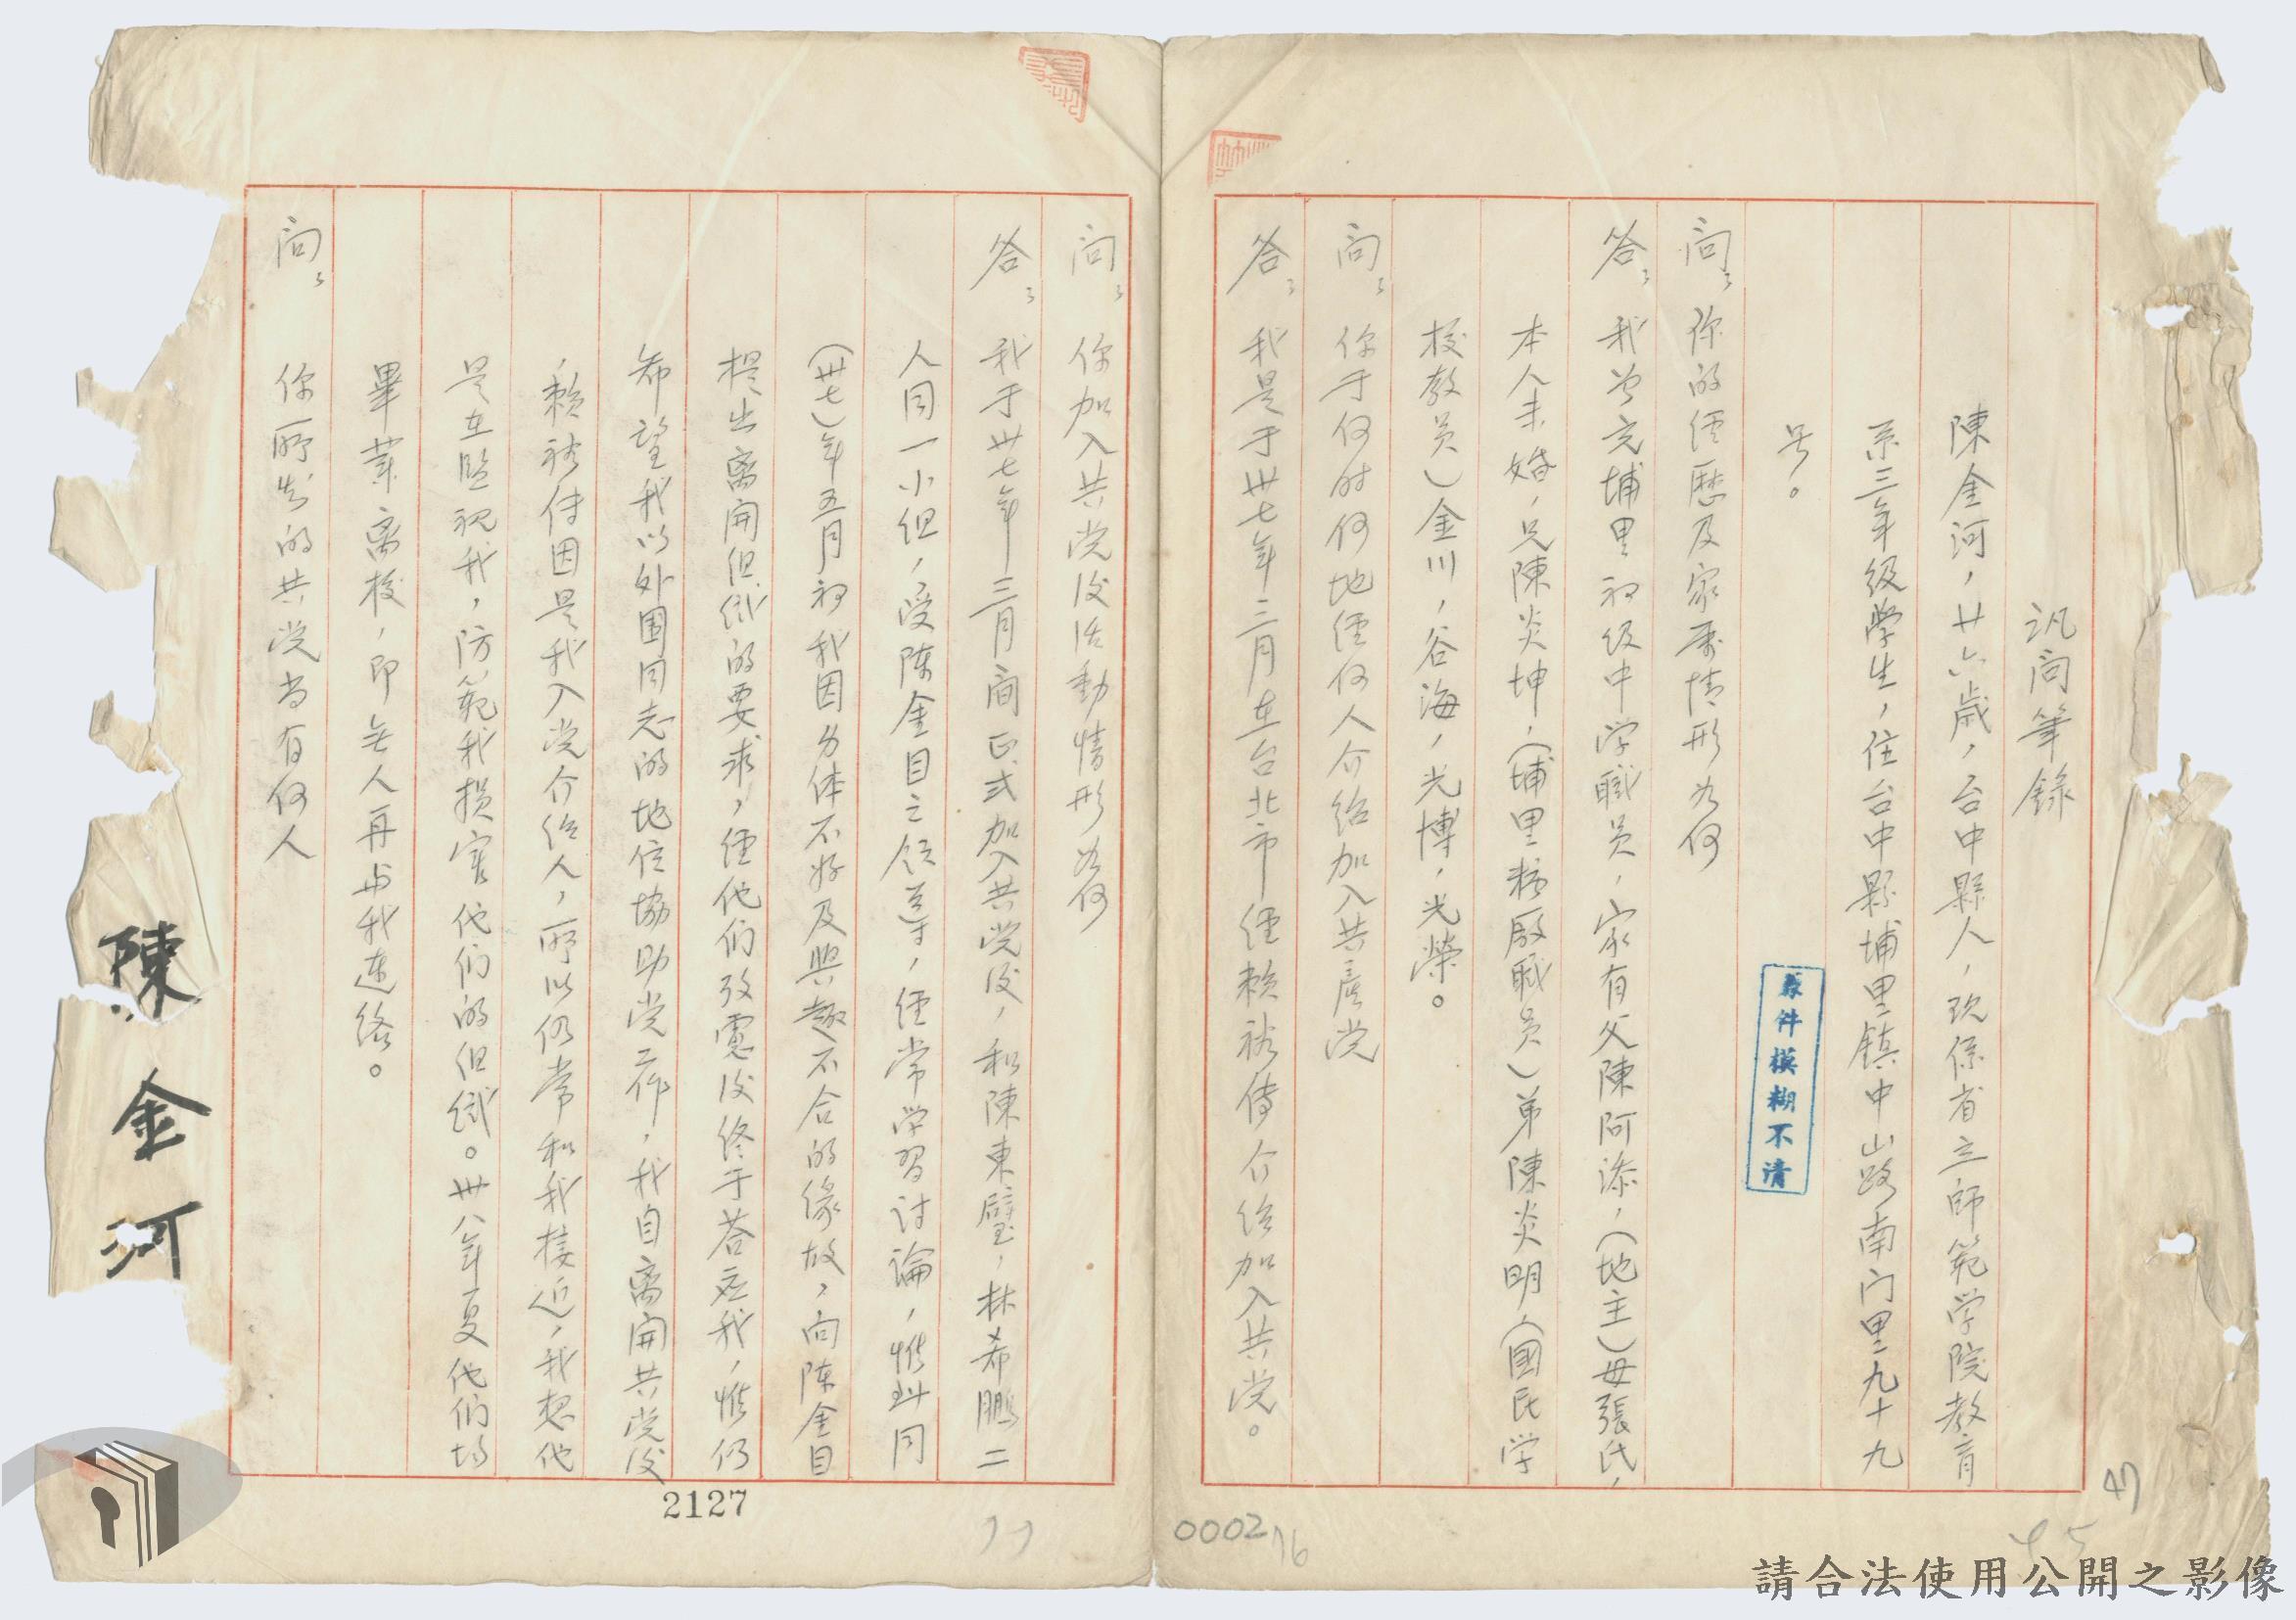 訊问筆錄
陳金河，廿六歲，台中縣人，现係省立師範学院教育
系三年級学生，住台中縣埔里鎮中山路南门里九十九
号。
问：你的經歷及家屬情形为何
答：我曾充埔里初级中学職员，家有父陳阿添，（地主）母張氏，
本人未婚，兄陳炎坤，（埔里糖廠職员）弟陳炎明，（國民学
校教员）金川，谷海，光博，光榮。
问：你于何时何地經何人介绍加入共產党
答：我是于卅七年三月在台北市經賴裕傳介绍加入共党。
问：你加入共党後活動情形为何
答：我于卅七年三月间正式加入共党後，和陳東璧，林希鵬二
人同一小组，受陈金目之領导，經常学習讨論，惟到同
（卅七）年五月初我因身体不好及興趣不合的缘故，向陈金目
提出离開组织的要求，經他们攷慮後终于答应我，惟仍
希望我以外围同志的地位協助党工作，我自离開共党後
，賴裕传因是我入党介绍人，所以仍常和我接近，我想他
是在監视我，防範我损害他们的组织。卅八年夏他们均
畢業离校，即无人再与我連络。
问：你所知的共党尚有何人
陳金河
原件模糊不清
2127
77
0002
76
45
47
請合法使用公開之影像